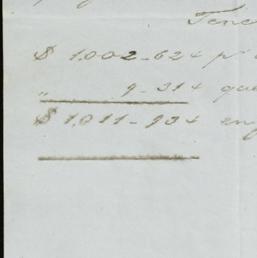 Tene
$ 1.002-624 p'
" 9-314 que
$ 1,011-934 en